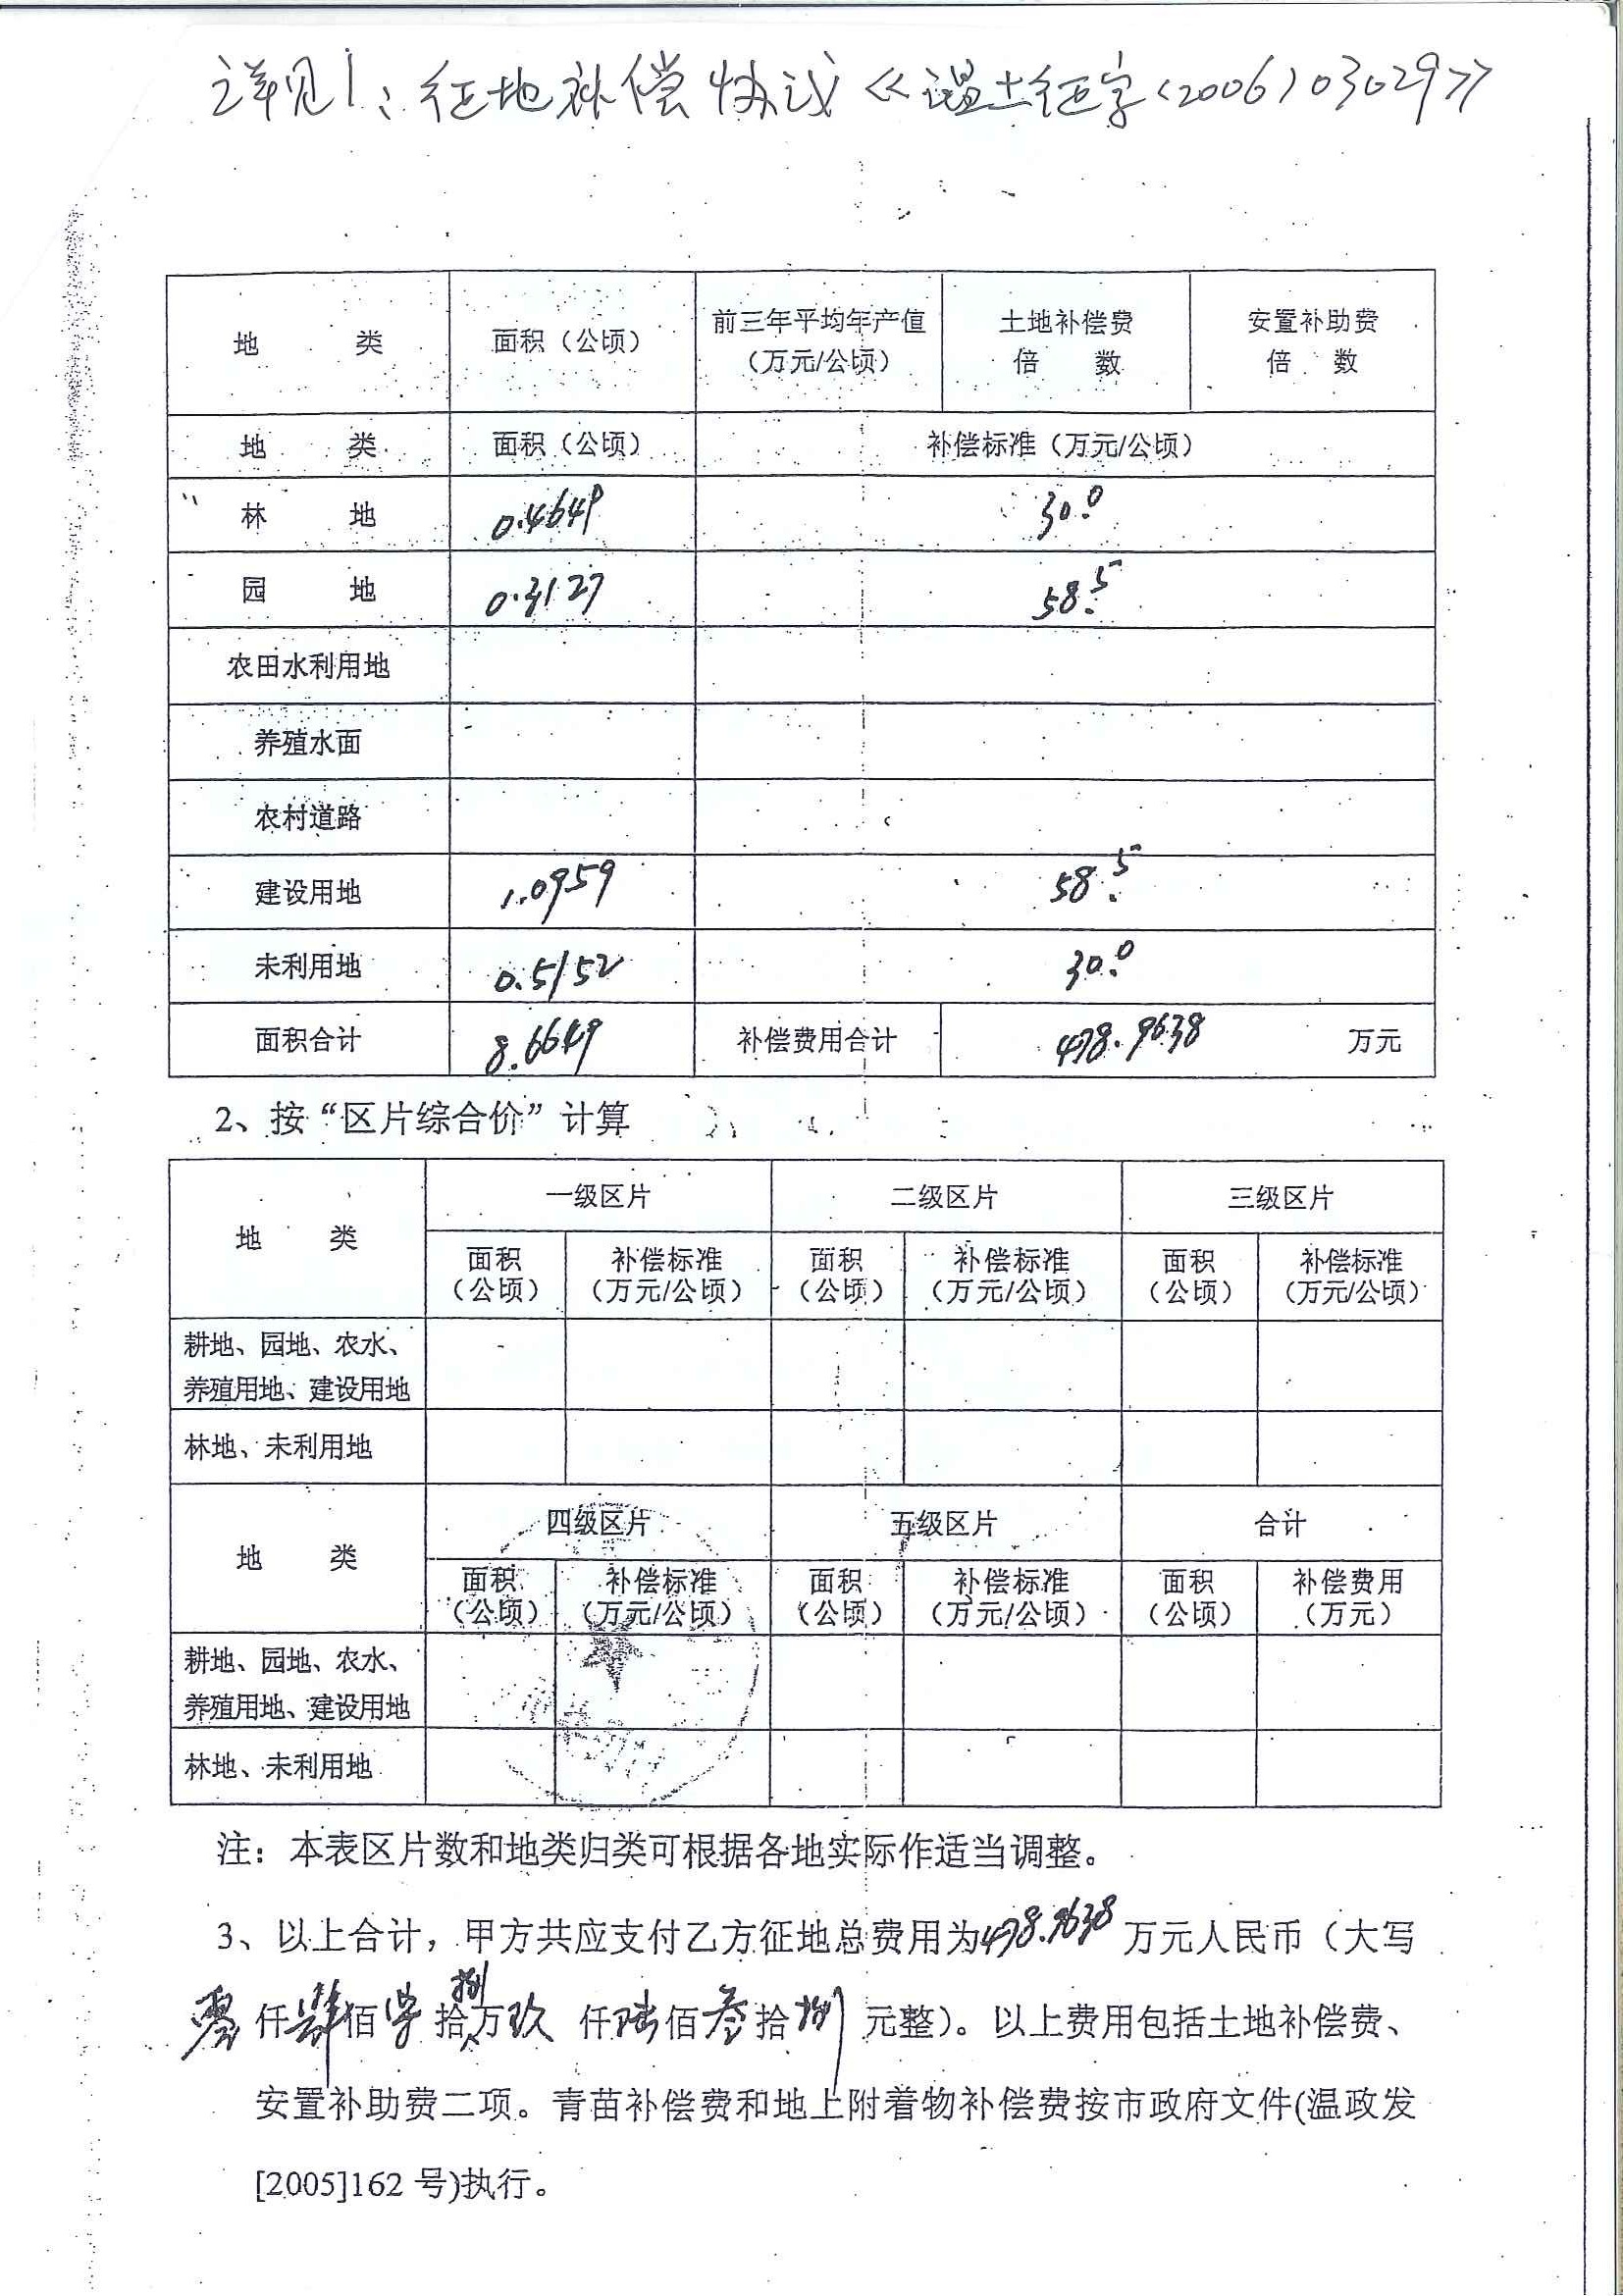 详见1:征地补偿协议《温土征字(2006)03029》
地 类 面积（公顷） 前三年平均年产值（万元/公顷） 土地补偿费倍 数 安置补助费倍 数
地 类 面积（公顷） 补偿标准（万元/公顷）
林 地 0.4649 30.0
园 地 0.3127 58.5
农田水利用地
养殖水面
农村道路
建设用地 1.0959 58.5
未利用地 0.5152 30.0
面积合计 8.6649 补偿费用合计 478.9638 万元
2、按“区片综合价”计算
地 类 一级区片 二级区片 三级区片
面积（公顷） 补偿标准（万元/公顷） 面积（公顷） 补偿标准（万元/公顷） 面积（公顷） 补偿标准（万元/公顷）
耕地、园地、农水、
养殖用地、建设用地
林地、未利用地
地 类 四级区片 五级区片 合计
面积（公顷） 补偿标准（万元/公顷） 面积（公顷） 补偿标准（万元/公顷） 面积（公顷） 补偿费用（万元）
耕地、园地、农水、
养殖用地、建设用地
林地、未利用地
注：本表区片数和地类归类可根据各地实际作适当调整。
3、以上合计，甲方共应支付乙方征地总费用为478.9638万元人民币（大写
零仟肆佰柒拾捌万玖仟陆佰叁拾捌元整）。以上费用包括土地补偿费、
安置补助费二项。青苗补偿费和地上附着物补偿费按市政府文件(温政发
[2005]162号)执行。